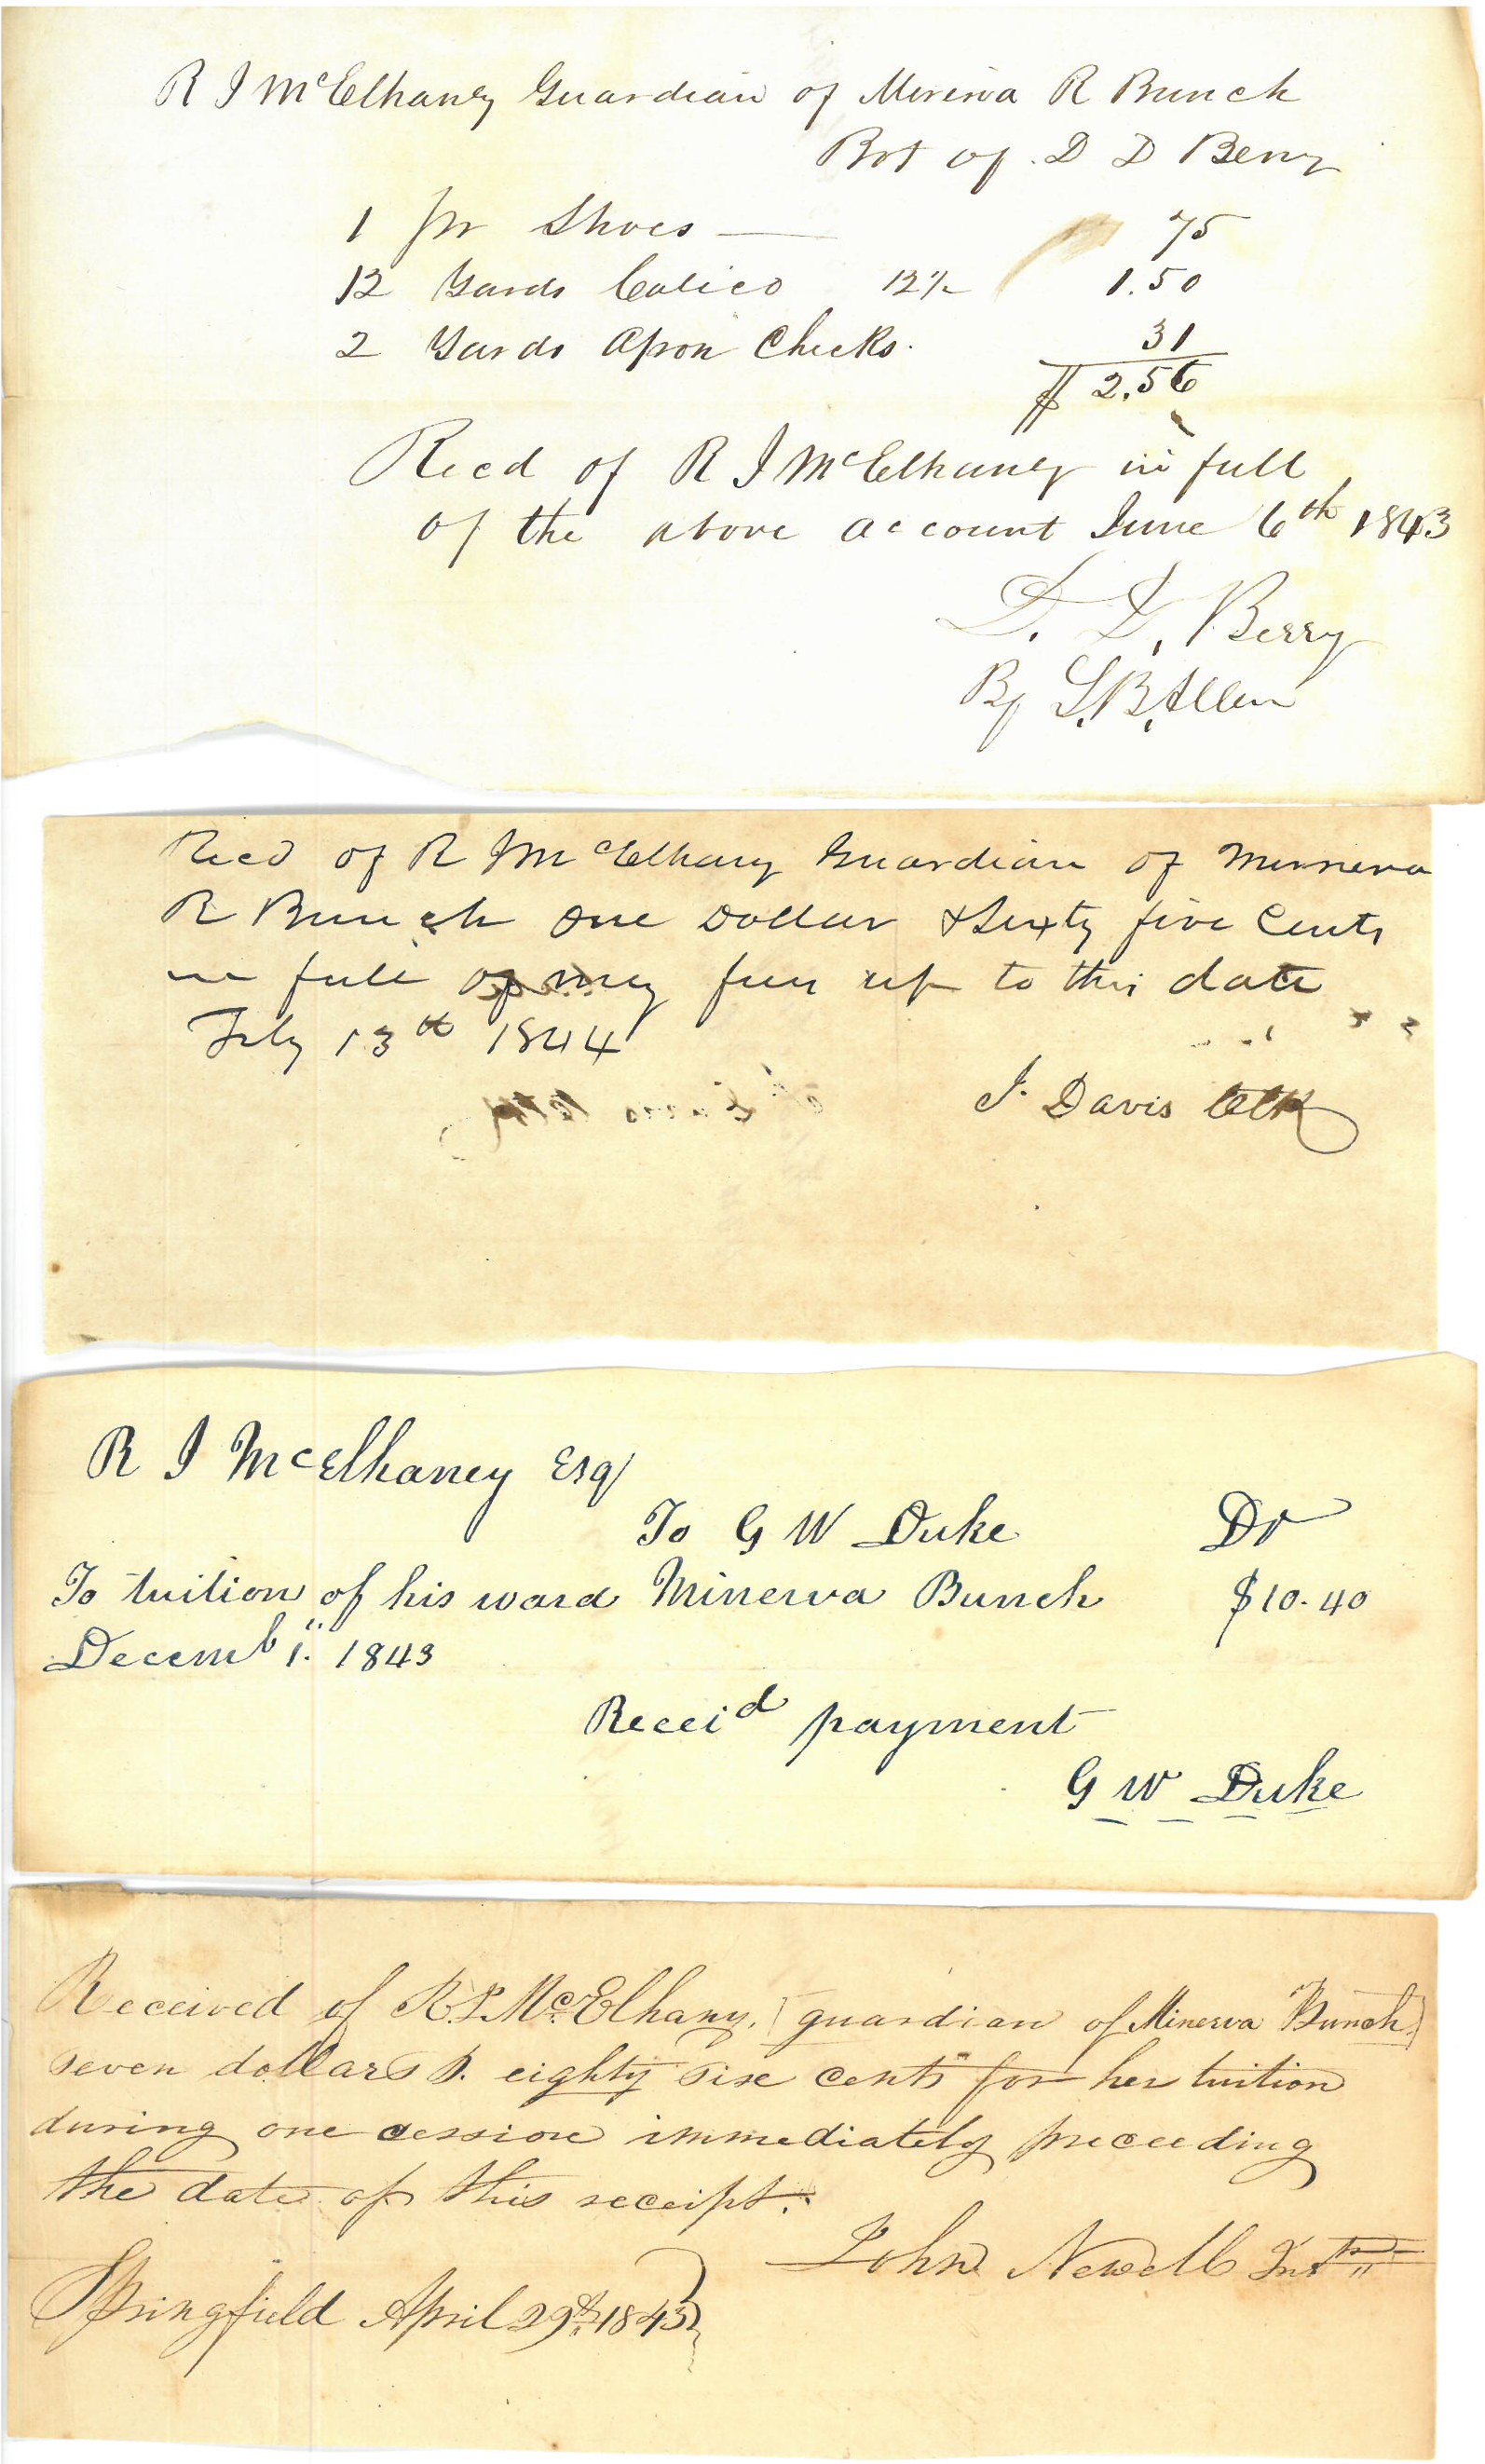 R I McElhaney Guardian of Minerva R Bunch
Bot of D D Berry
1 pr Shoes — 75
12 Yards Calico 12½ 1.50
2 Yards Apron Checks. 31
$ 2.56
Recd of R I McElhaney in full
of the above account June 6th 1843
D. D. Berry
By L.B. Allen
Recd of R I McElhany Guardian of Minnerva
R Bunch One Dollar & Sixty five Cents
in full of my fees up to this date
July 13th 1844
J. Davis Clk
R I McElhaney Esq
To G W Duke Dr
To tuition of his ward Minerva Bunch $10.40
Decemb 1. 1843
Receid payment
G W Duke
Received of R. I. McElhany, [guardian of Minerva Bunch]
seven dollars & eighty six cents for her tuition
during one session immediately preceeding
the date of this receipt.
John Newell Instr
Springfield April 29th 1843